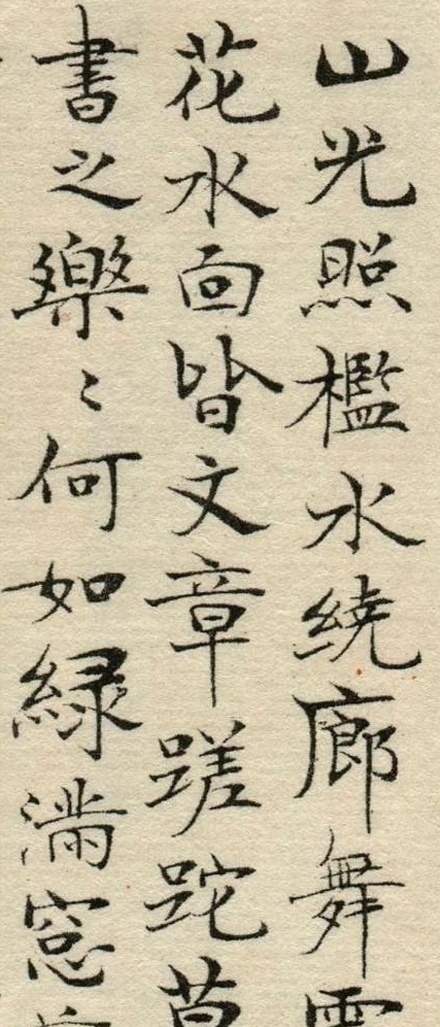 山光照檻水繞廊舞雩
花水面皆文章蹉跎莫
書之樂〻何如綠滿窓